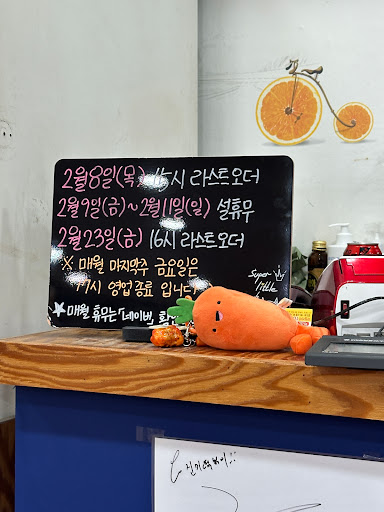 2월8일(목) 15시 라스트오더
2월9일(금)~2월11일(일) 설휴무
2월23일(금) 16시 라스트오더
※ 매월 마지막주 금요일은
17시 영업종료 입니다
★매월 휴무는 「네이버,
Super
Milk